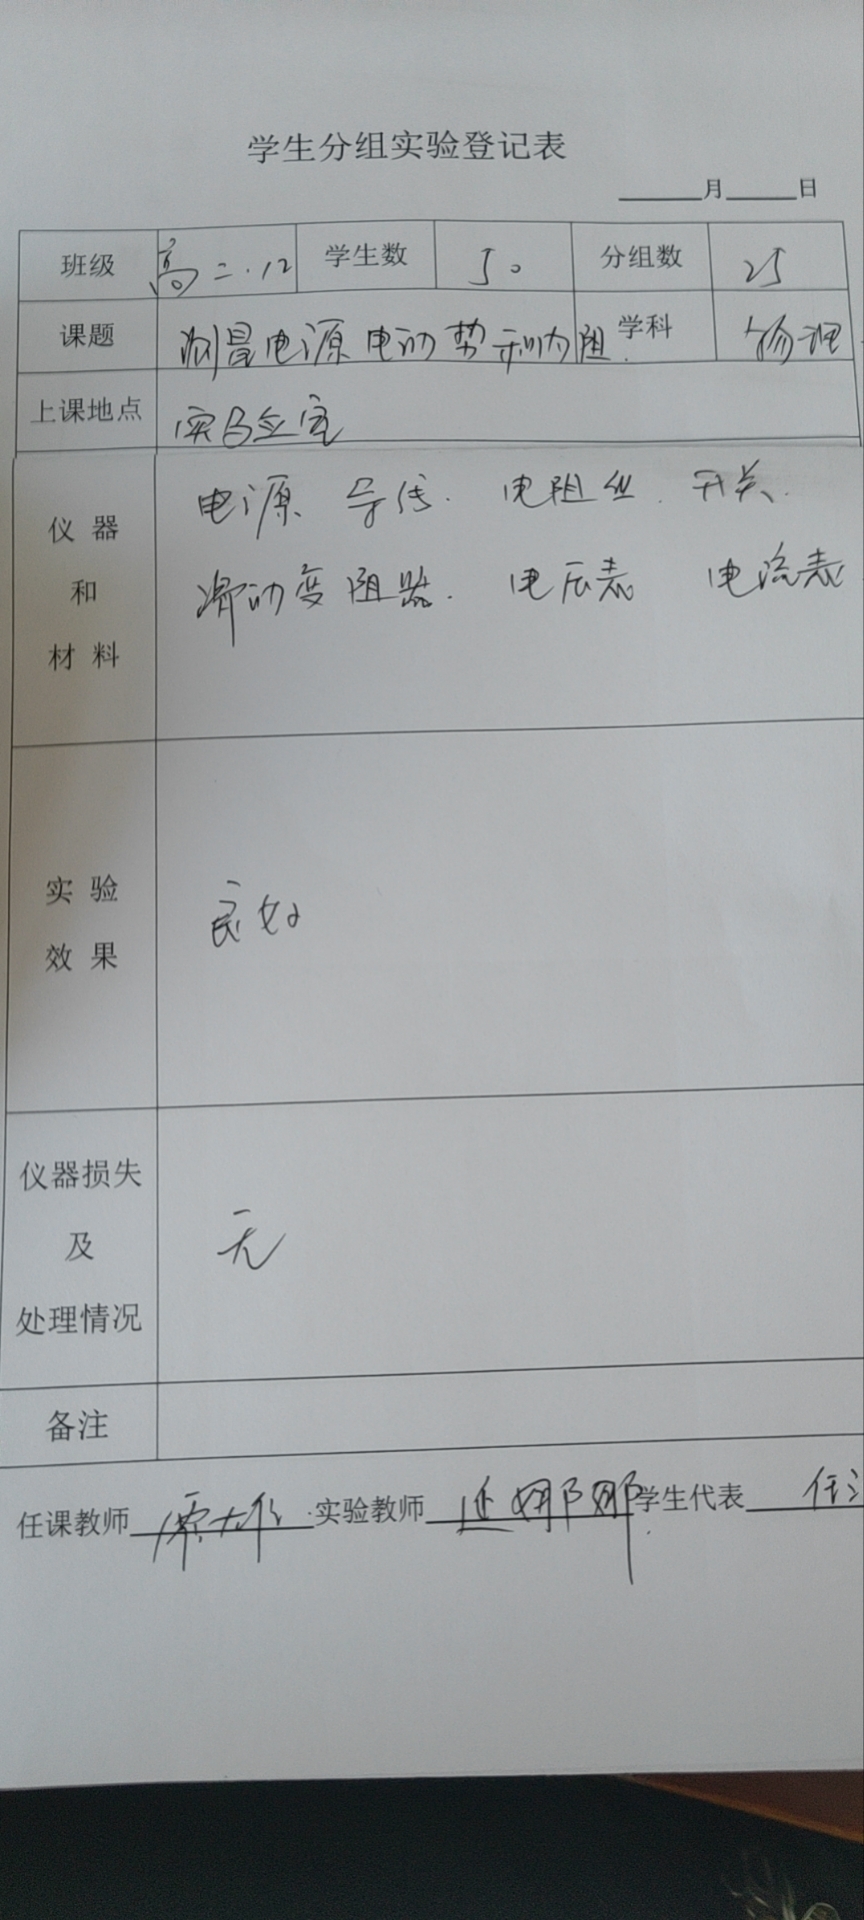 学生分组实验登记表
月 日
班级 高二.12 学生数 50 分组数 25
课题 测量电源电动势和内阻. 学科 物理
上课地点 实验室
仪器和材料 电源 导线. 电阻丝. 开关.
滑动变阻器. 电压表 电流表
实验效果 良好
仪器损失及处理情况 无
备注
任课教师 实验教师 延娜娜 学生代表 任